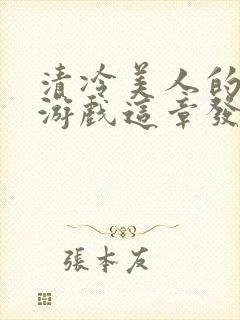 清冷美人的
游戲這章發
張本友